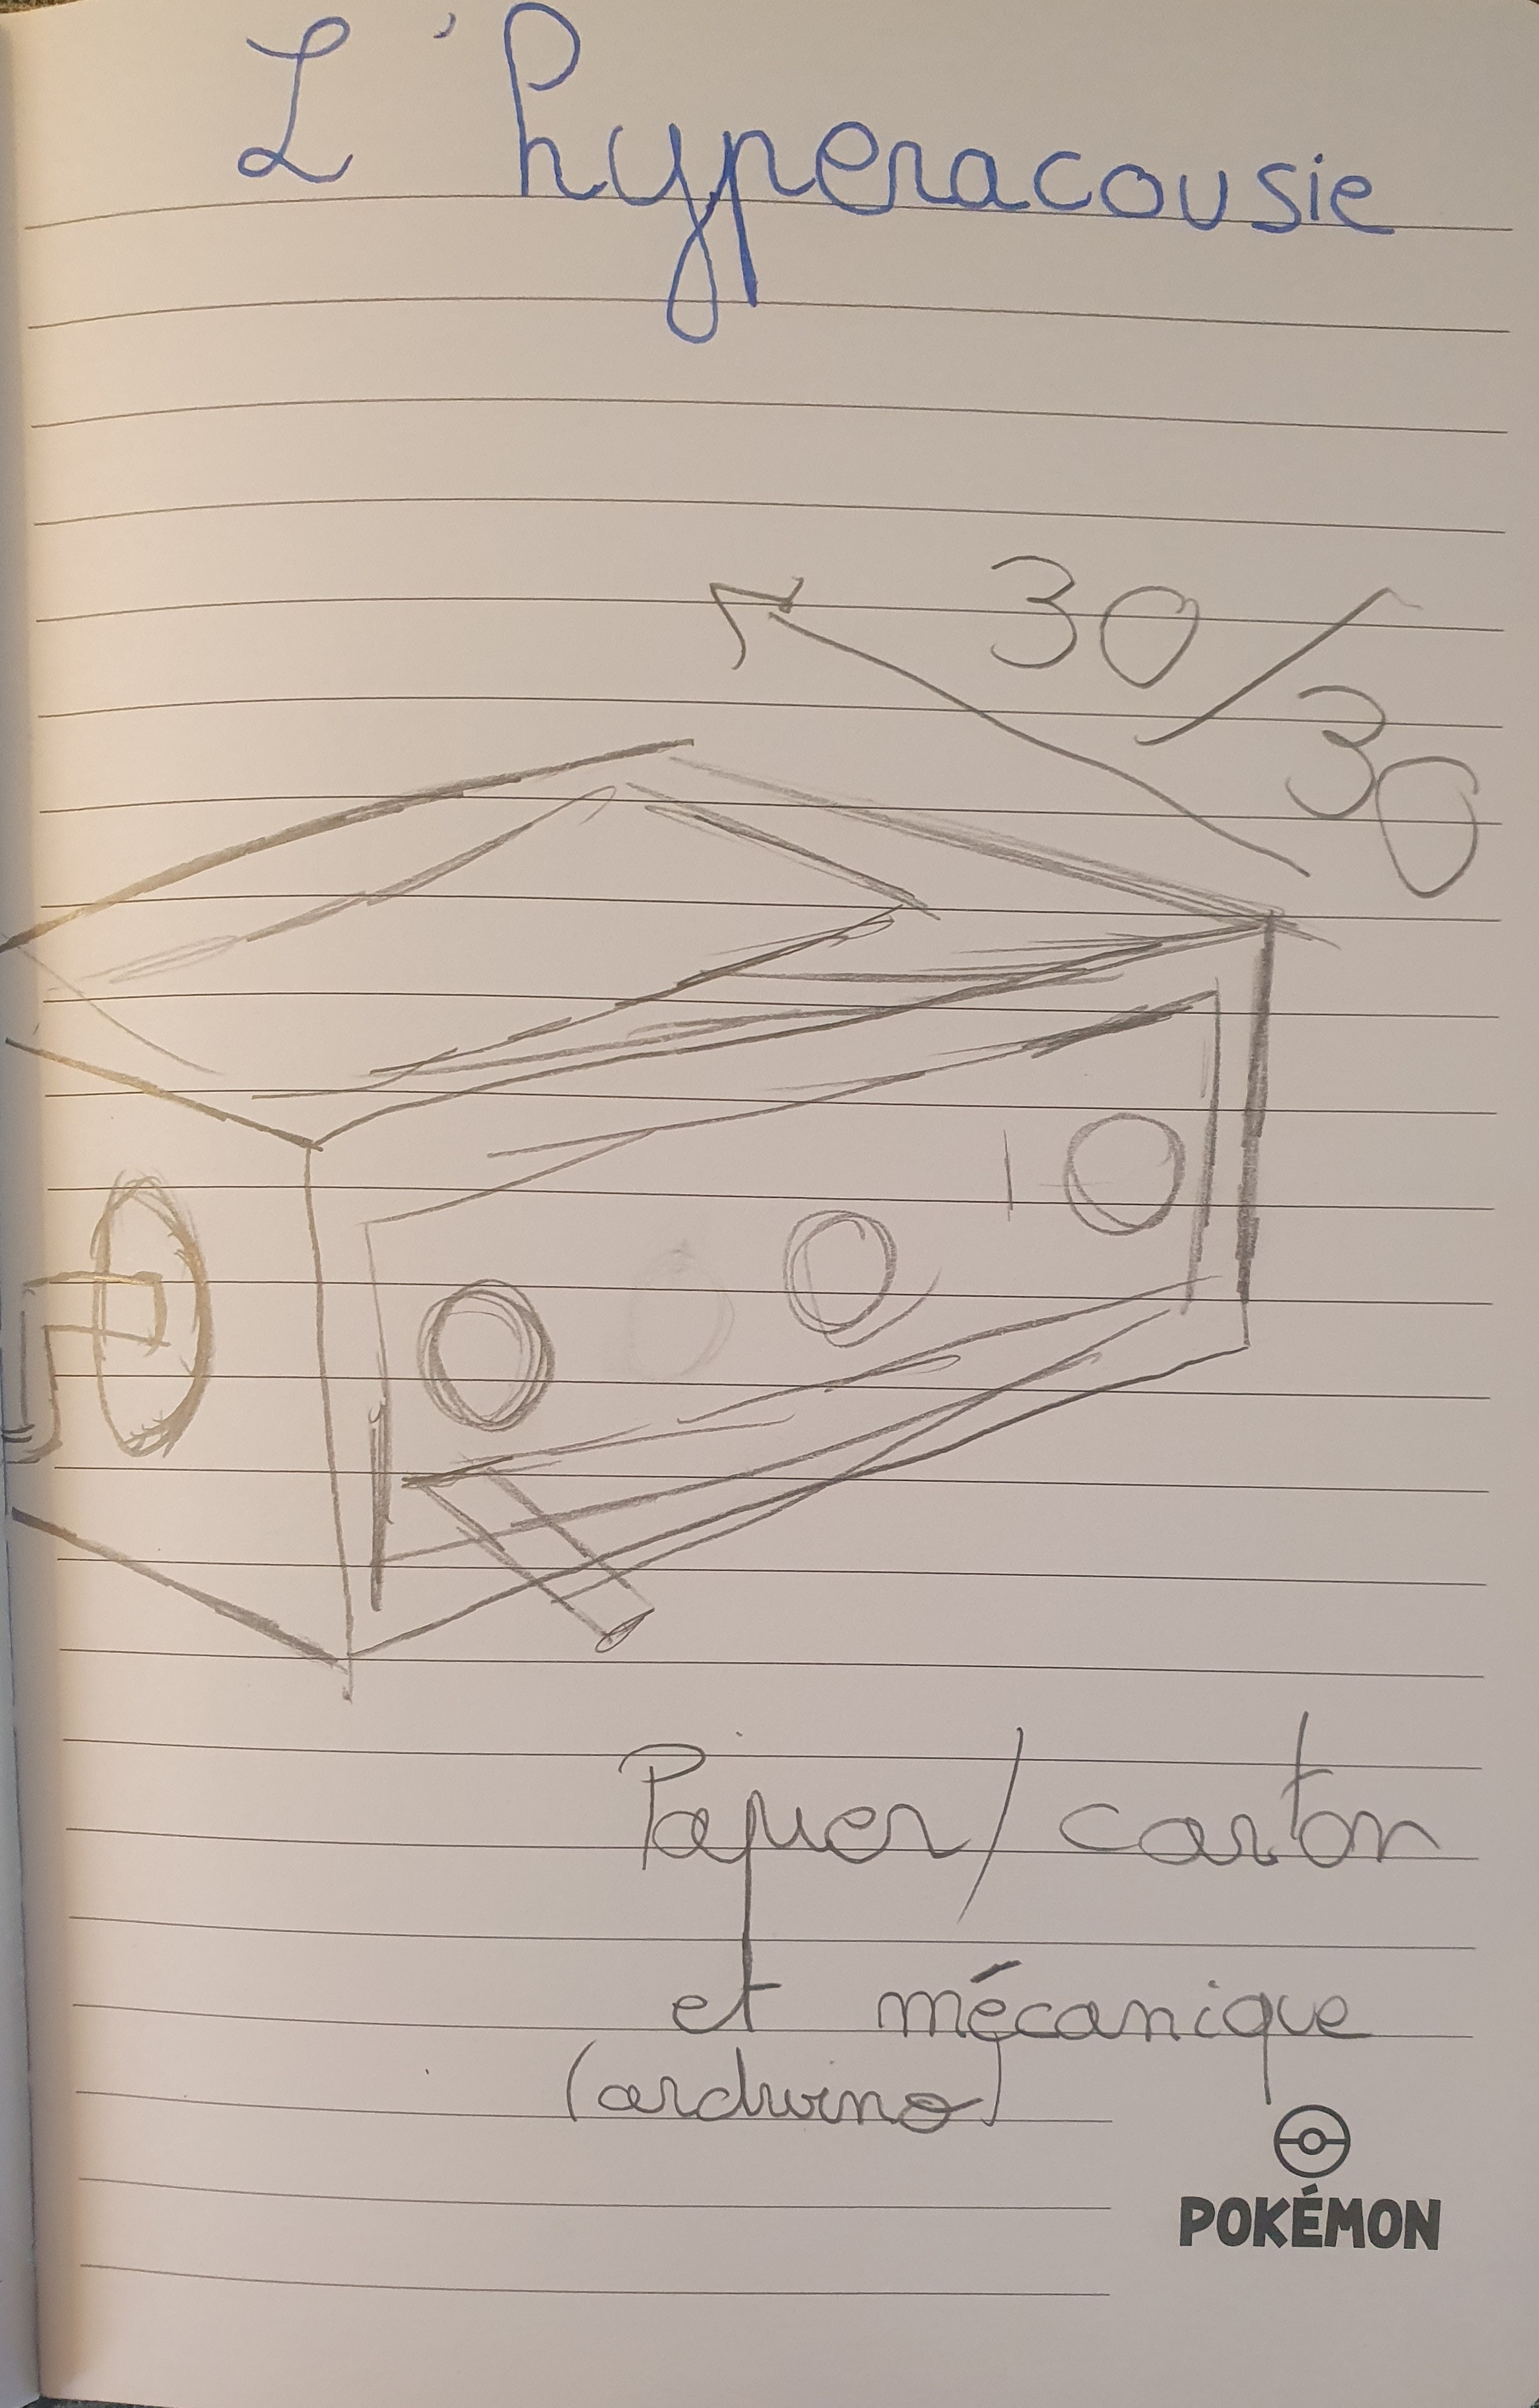 L'hyperacousie
30/30
Papier/carton
et mécanique
(arduino)
POKÉMON